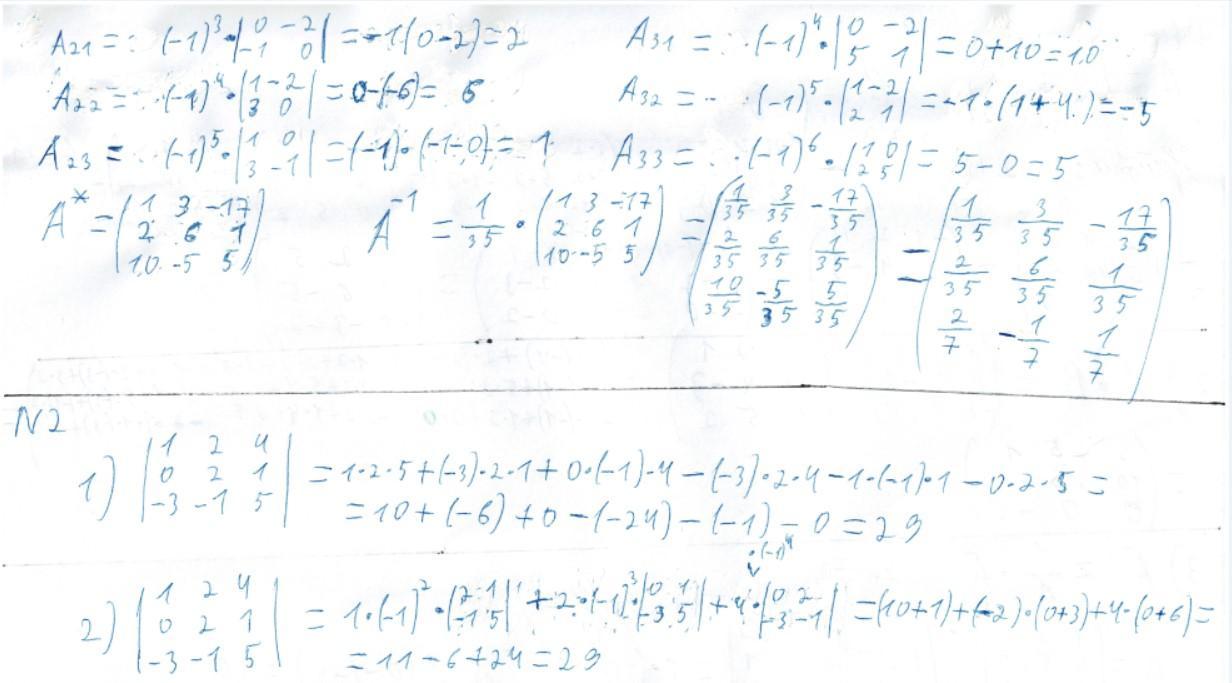 A₂₁ = (-1)³·|0 -2; -1 0| = -1(0-2) = 2
A₃₁ = (-1)⁴·|0 -2; 5 1| = 0+10 = 10
A₂₂ = (-1)⁴·|1 -2; 3 0| = 0-(-6) = 6
A₃₂ = (-1)⁵·|1 -2; 2 1| = -1·(1+4) = -5
A₂₃ = (-1)⁵·|1 0; 3 -1| = (-1)·(-1-0) = 1
A₃₃ = (-1)⁶·|1 0; 2 5| = 5-0 = 5
A* = (1 3 -17; 2 6 1; 10 -5 5) A⁻¹ = 1/35 · (1 3 -17; 2 6 1; 10 -5 5) = (1/35 3/35 -17/35; 2/35 6/35 1/35; 10/35 -5/35 5/35) = (1/35 3/35 -17/35; 2/35 6/35 1/35; 2/7 -1/7 1/7)
N2
1) |1 2 4; 0 2 1; -3 -1 5| = 1·2·5+(-3)·2·1+0·(-1)·4-(-3)·2·4-1·(-1)·1-0·2·5 =
= 10+(-6)+0-(-24)-(-1)-0 = 29
2) |1 2 4; 0 2 1; -3 -1 5| = 1·(-1)²·|2 1; -1 5| + 2·(-1)³·|0 1; -3 5| + 4·(-1)⁴·|0 2; -3 -1| = (10+1)+(-2)·(0+3)+4·(0+6) =
= 11-6+24 = 29